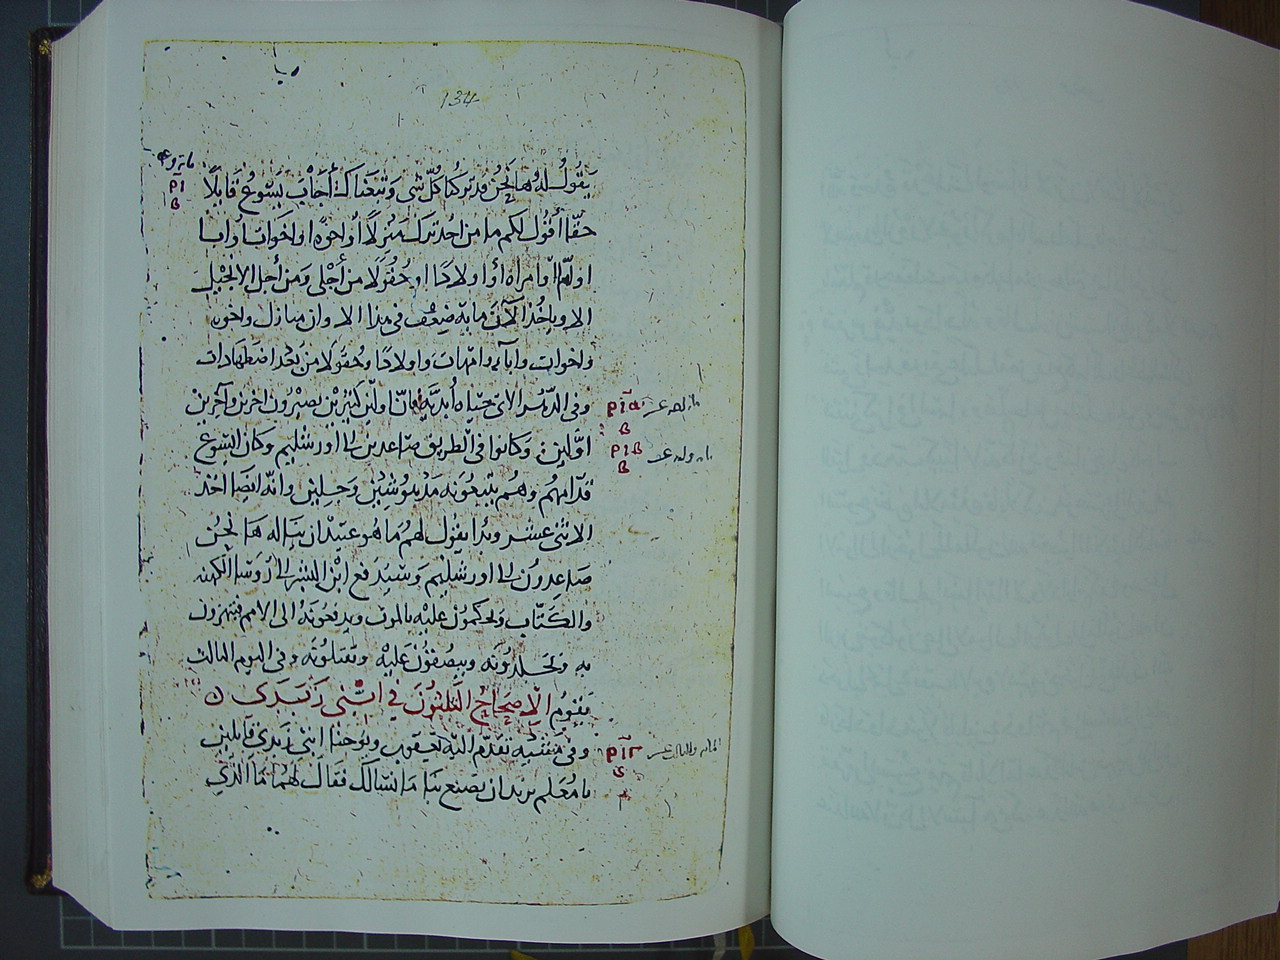 134
يقول له ها نحن قد تركنا كل شي وتبعناك أجاب يسوع قايلاً
حقا أقول لكم ما من احد ترك منزلاً أو اخوه او اخوات أو ابا
او امّا او امراه أو اولادًا او حقولا من أجلي ومن أجل الانجيل
الا وياخذ الآن مايه ضعف في هذا الاوان منازل واخوه
واخوات وآباء وامهات واولادًا وحقولا من بعد اضطهادات
وفي الدهر الاتي حياه أبديه فانّ اولين كثيرين يصيرون اخرين وآخرين
اوّلين وكانوا في الطريق صاعدين الى اورشليم وكان اليسوع
قدّامهم وهم يتبعونه مدهوشين وجلين وانه ايضا اخذ
الاثني عشر وبدا يقول لهم ما هو عتيد ان يناله ها نحن
صاعدون الى اورشليم وسيدفع ابن البشر الى روسا الكهنه
والكتّاب ويحكمون عليه بالموت ويدفعونه الى الامم فيهزون
به ويجلدونه ويبصقون عليه ويقتلونه وفي اليوم الثالث
يقوم الاصحاح الثلثون في ابني زبدى
وفي تقدّم اليه يعقوب ويوحنا ابني زبدي قايلين
يا معلم نريد ان تصنع بنا ما نسالك فقال لهما ما الذي